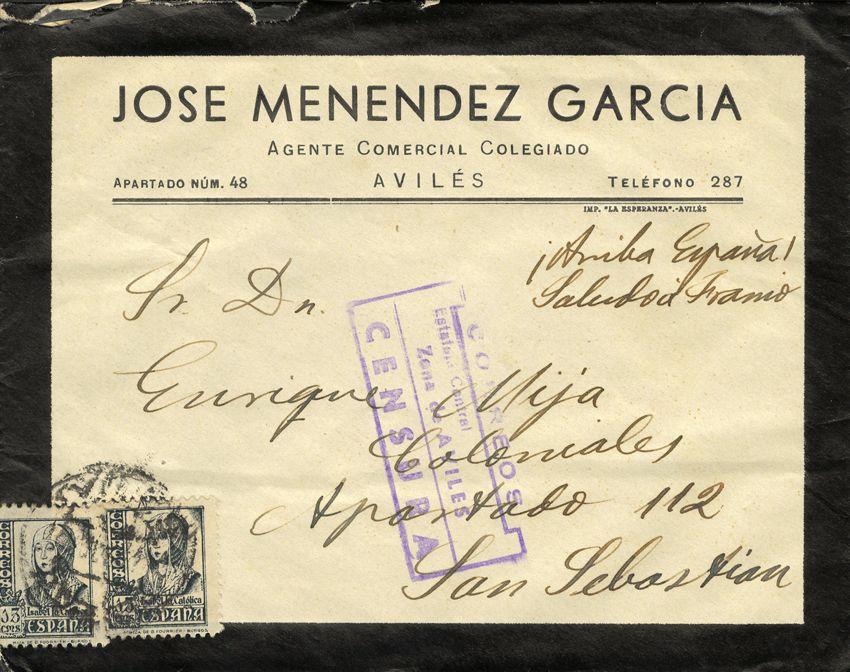 JOSE MENENDEZ GARCIA
AGENTE COMERCIAL COLEGIADO
APARTADO NÚM. 48 AVILÉS TELÉFONO 287
IMP. "LA ESPERANZA".-AVILÉS
¡Arriba España!
Saludo a Franco
Sr. Dn.
Enrique Mija
Coloniales
Apartado 112
San Sebastian
CORREOS
Estafeta Central
Zona de AVILES
CENSURA
CORREOS
15 CTS
Isabel la Católica
ESPAÑA
CORREOS
15 CTS
Isabel la Católica
ESPAÑA